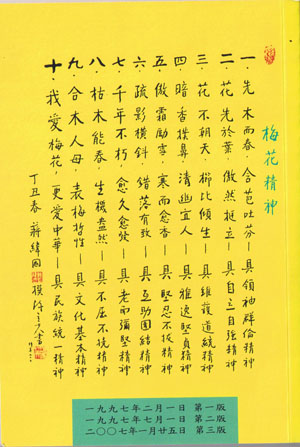 梅花精神
一·先木而春 含苞吐芬—具領袖群倫精神
二·花先於葉 傲然挺立—具自立自強精神
三·花不朝天 櫛比傾生—具維護道統精神
四·暗香撲鼻 清幽宜人—具雅逸堅貞精神
五·傲霜勵雪 寒而愈香—具堅忍不拔精神
六·疏影橫斜 錯落有致—具互助團結精神
七·千年不朽 愈久愈—具老而彌堅精神
八·枯木能春 生機盎然—具不屈不撓精神
九·合木人母 表梅哲性—具文化基本精神
十·我愛梅花 更愛中華—具民族統一精神
丁丑春 蔣緯國 撰 書
一九九七年二月一日 第一版
一九九七年 月一日 第二版
二〇〇七年一月廿五日 第三版